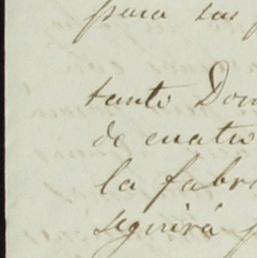 para sus
tanto Don
de cuatro
la fabri
seguirá